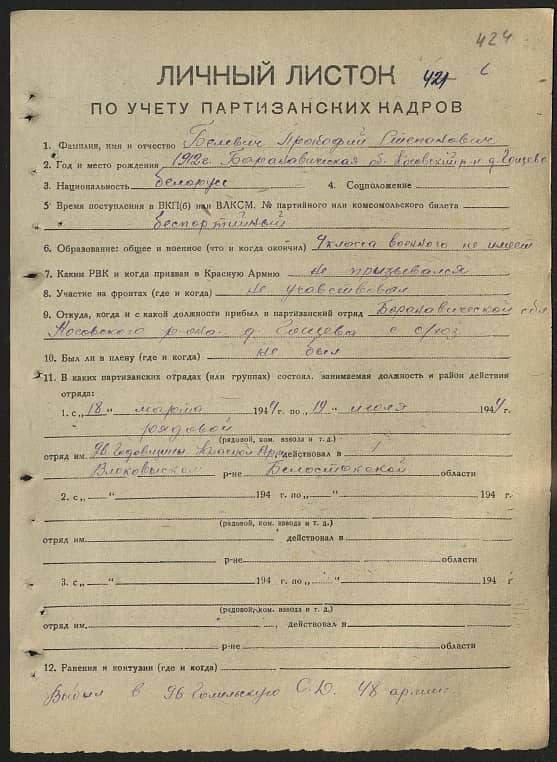 424
ЛИЧНЫЙ ЛИСТОК 421
ПО УЧЕТУ ПАРТИЗАНСКИХ КАДРОВ
1. Фамилия, имя и отчество Белевич Прокофий Степанович
2. Год и место рождения 1912г. Барановическая об. Косовский р-н д. Гощево
3. Национальность белорус 4. Соцположение
5 Время поступления в ВКП(б) или ВЛКСМ, № партийного или комсомольского билета
беспортийный
6. Образование: общее и военное (что и когда окончил) 4 класса военного не имеет
7. Каким РВК и когда призван в Красную Армию не призывался
8. Участие на фронтах (где и когда) не учавствовал
9. Откуда, когда и с какой должности прибыл в партизанский отряд Барановической обл.
Косовского р-она д. Гощева с с/хоз
10. Был ли в плену (где и когда) не был
11. В каких партизанских отрядах (или группах) состоял, занимаемая должность и район действия
отряда:
1. с „18“ марта 1944 г. по „19“ июля 1944 г.
рядовой
(рядовой, ком. взвода и т. д.)
отряд им. 26 Годовщины Красной Арм действовал в
Влоковыском р-не Белостокской области
2. с „ “ 194 г. по „ “ 194 г.
(рядовой, ком. взвода и т. д.)
отряд им. действовал в
р-не области
3. с „ “ 194 г. по „ “ 194 г
(рядовой, ком. взвода и т. д.)
отряд им. действовал в
р-не области
12. Ранения и контузии (где и когда)
Выбыл в Гомельскую С.Д. 48 армии